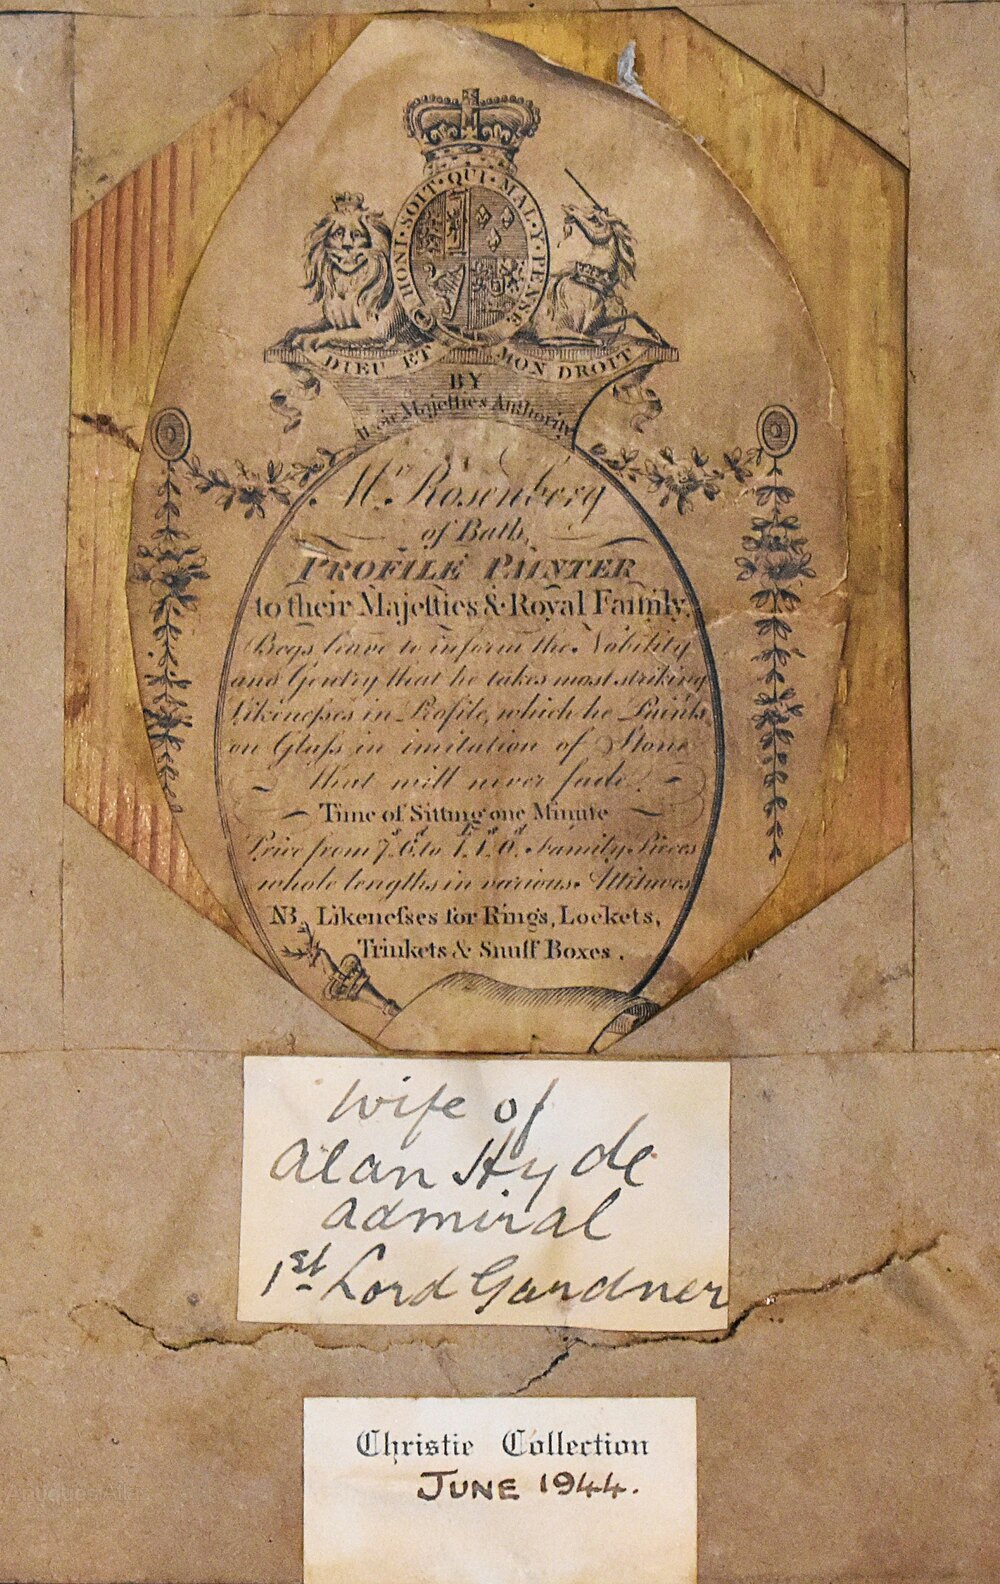 HONI·SOIT·QUI·MAL·Y·PENSE
DIEU ET MON DROIT
BY
Their Majesties Authority
Mr. Rosenberg
of Bath,
PROFILE PAINTER
to their Majesties & Royal Family,
Begs leave to inform the Nobility
and Gentry that he takes most striking
Likenesses in Profile, which he Paints
on Glass in imitation of Stone
that will never fade.
Time of Sitting one Minute
Price from 7s. 6d. to £1. 1s. 0d. Family Pieces
whole lengths in various Attitudes
NB. Likenesses for Rings, Lockets,
Trinkets & Snuff Boxes.
Wife of
Alan Hyde
Admiral
1st Lord Gardner
Christie Collection
JUNE 1944.